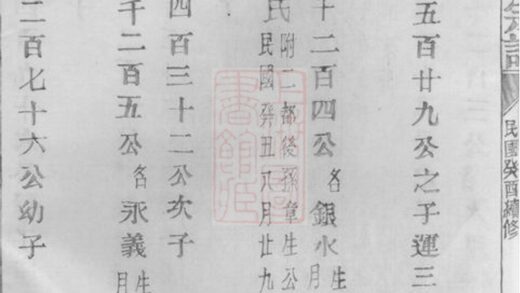 民國癸酉續修
五百廿九公之子運三
千二百四公名銀水生
月
氏附二都後孫章生公
民國癸丑八月廿九
四百三十二公次子
千二百五公名永義生
月
二百七十六公幼子